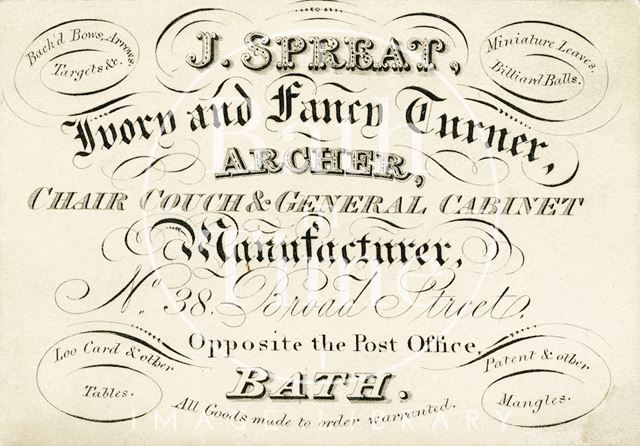 J. SPREAT,
Back'd Bows, Arrows,
Targets &c.
Miniature Leaves,
Billiard Balls.
Ivory and Fancy Turner,
ARCHER,
CHAIR COUCH & GENERAL CABINET
Manufacturer,
No. 38, Broad Street,
Opposite the Post Office,
BATH.
Loo Card & other
Tables.
Patent & other
Mangles.
All Goods made to order warranted.
Bath
in
Time
IMAGE LIBRARY